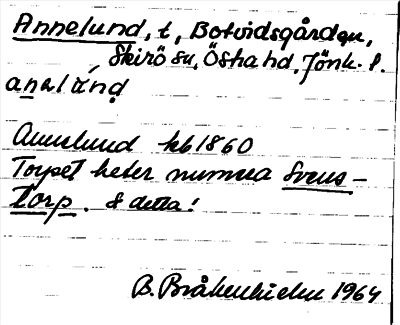 Annelund, t, Botvidsgården,
Skirö sn, Östra hd, Jönk. l.
anəlúnḍ
Annelund kb 1860
Torpet heter numera Svens-
torp. & detta!
B. Bråkenhielm 1964